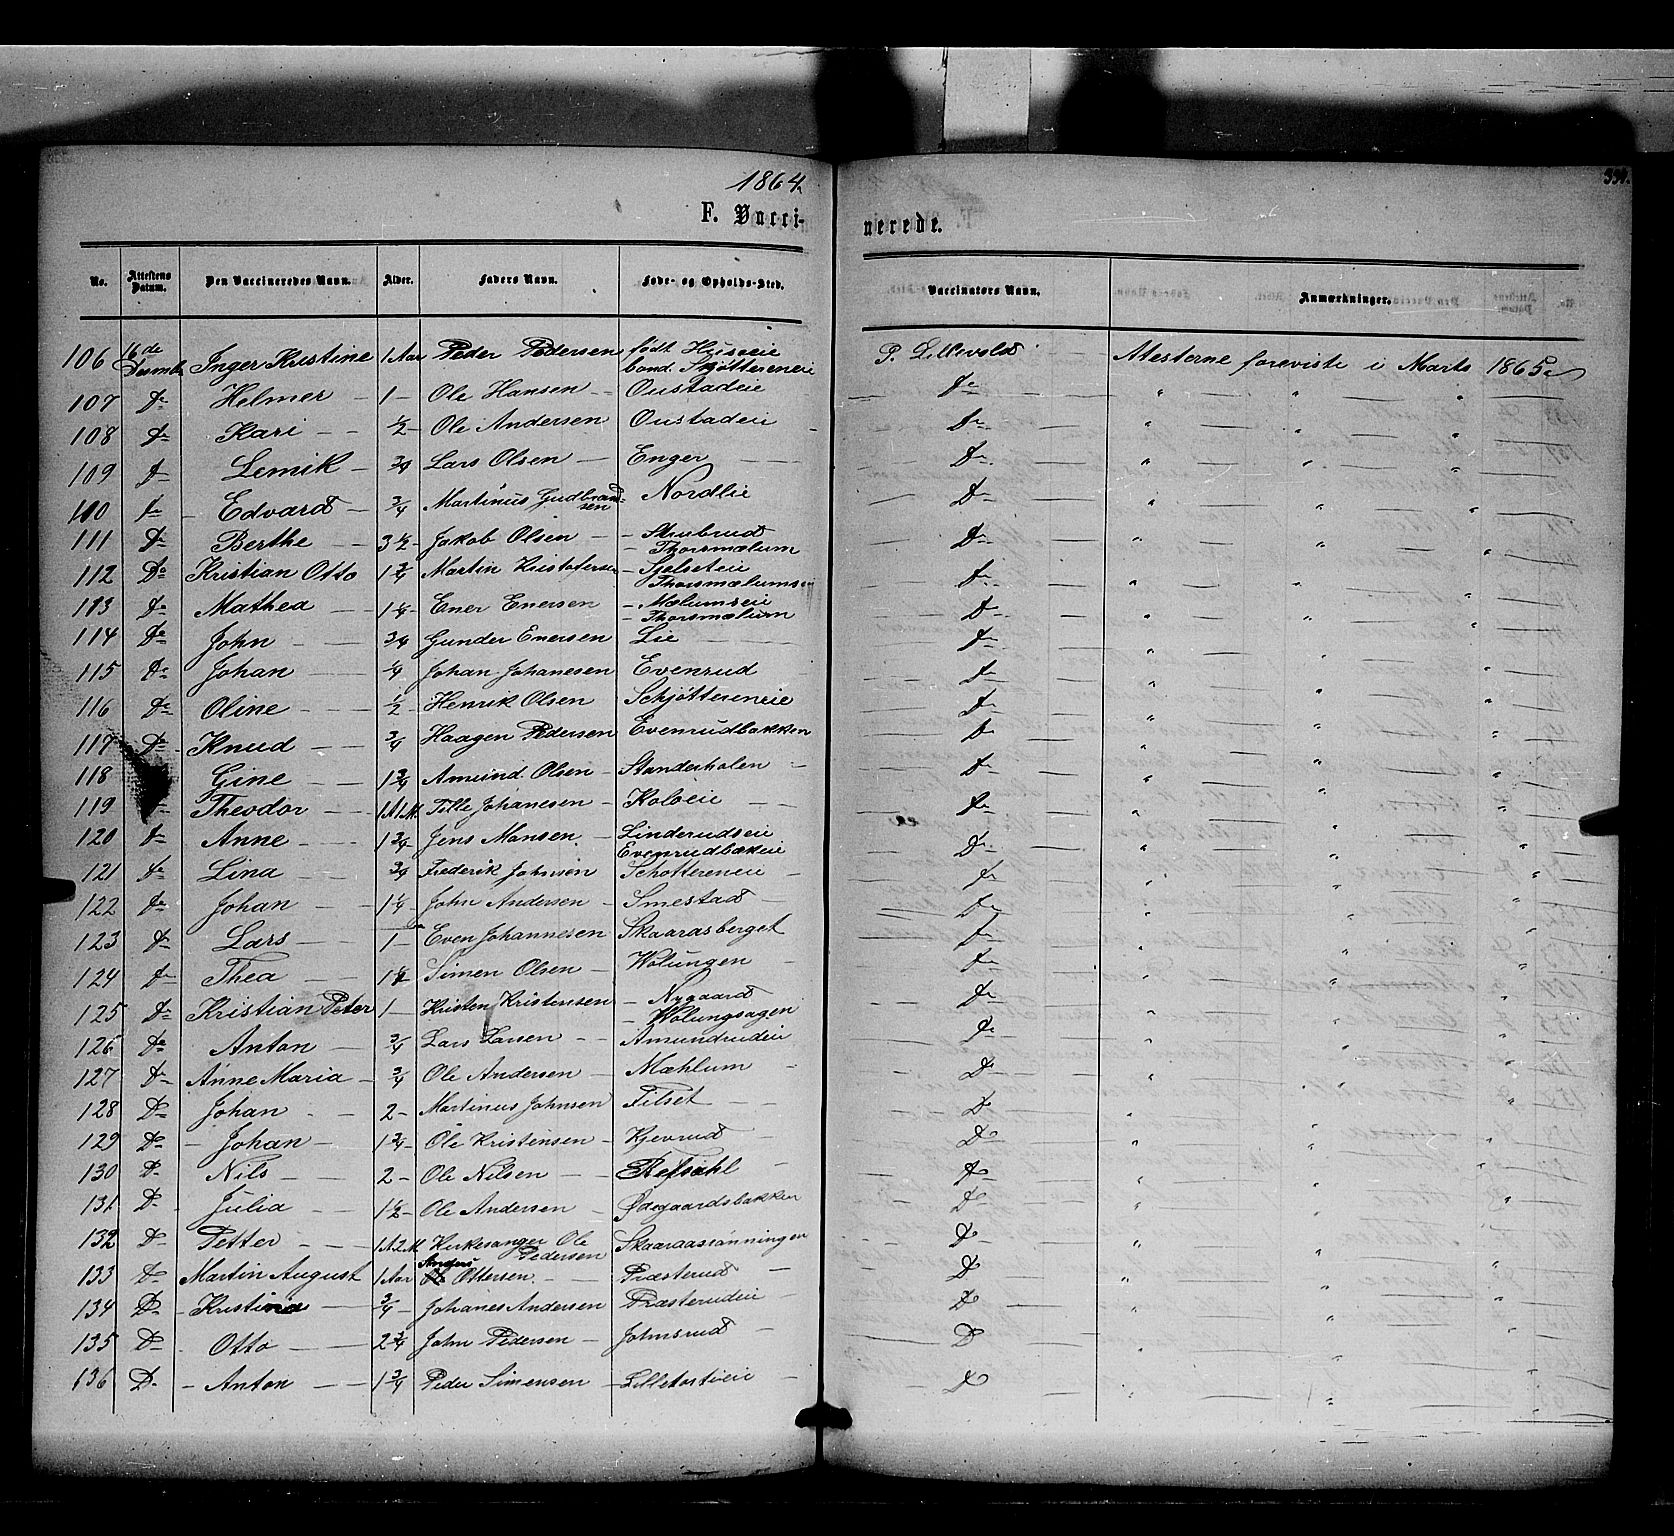 1864
F. Vacci-
nerede.
334.
No. Attestens Datum. Den Vaccineredes Navn. Alder. Faders Navn. Føde- og Opholds-Sted. Vaccinators Navn. Anmærkninger.
106 16de Inger Kristine 1 Aar Peder Pedersen født Huseie
boend. Skjøttereneie P. Lillevold Atesterne foreviste i Marts 1865
107 Do Helmer 1 - Ole Hansen - Oustadeie Do " " "
108 Do Kari - - 1/2 - Ole Andersen Oustadeie - Do " " "
109 Do Lemik - 3/4 Lars Olsen - Enger Do " " "
110 Do - Edvard - 3/4 Martinus Gudbrand-
sen Nordlie Do " " "
111 Do Berthe - 3 1/2 - Jakob Olsen - - Stubrud
- Thorsmælum Do " " "
112 Do Kristian Otto 1 3/4 Martin Kristofersen - Sjelseteie
Thorsmælumsei Do " " "
113 Do Mathea - 1 1/4 - Ener Enersen - Mælumseie
- Thorsmælum Do " " "
114 Do John - 3/4 Gunder Enersen Lie Do " " "
115 Do Johan 1/4 Johan Johanesen Evenrud Do " " "
116 Do Oline - - 1/2 - Henrik Olsen Schjøttereneie Do " " "
117 Do - Knud - - 3/4 Haagen Pedersen Evenrudbakken Do " " "
118 Gine - - 1 3/4 Amund Olsen - Standerholen - Do " " "
119 Theodor - 1A1M. Tille Johanesen - Koloeie - - Do " " "
120 Do Anne - - 1 3/4 Jens Mansen - Linderudseie
Evenrudbakeie Do " " "
121 Do Lina 3/4 Frederik Johnsen Schottereneie - Do " " "
122 Do Johan - - 1 1/4 - John Andersen - Smestad - Do " " "
123 Do Lars - - 1 - Even Johannesen Skaarasberget Do " " "
124 Do Thea - 1 1/2 Simen Olsen - Wolungen - Do " " "
125 Do Kristian Peter 1 - Kristen Kristensen - Nygaard
- Wolungsagen Do " " "
126 Do Anton - 3/4 Lars Larsen - - Amundrudeie Do " " "
127 Do Anne Maria - 3/4 Ole Andersen - Mæhlum - Do " " "
128 Do Johan - - 2 - Martinus Johnsen Filset - - Do " " "
129 Do - Johan - 1 3/4 - Ole Kristensen - Kjevrud - Do " " "
130 Do Nils - - 2 - Ole Nilsen - Refsahl - Do " " "
131 Do Julia - 1 1/2 - Ole Andersen - Ødegaardsbakken Do " " "
132 Do Petter - - 1A2M Kirkesanger Ole
Pedersen Skaaraasrønningen Do " " "
133 Do Martin August 1 Aar Anders
Ottersen - - Præsterud - Do " " "
134 Do - Kristina - 3/4 - Johanes Andersen Præsterudeie - Do " " "
135 Do Otto - - 2 3/4 John Pedersen - Johnsrud - Do " " "
136 Do - Anton - - 1 3/4 Peder Simensen - Lilletorteie - Do " " "